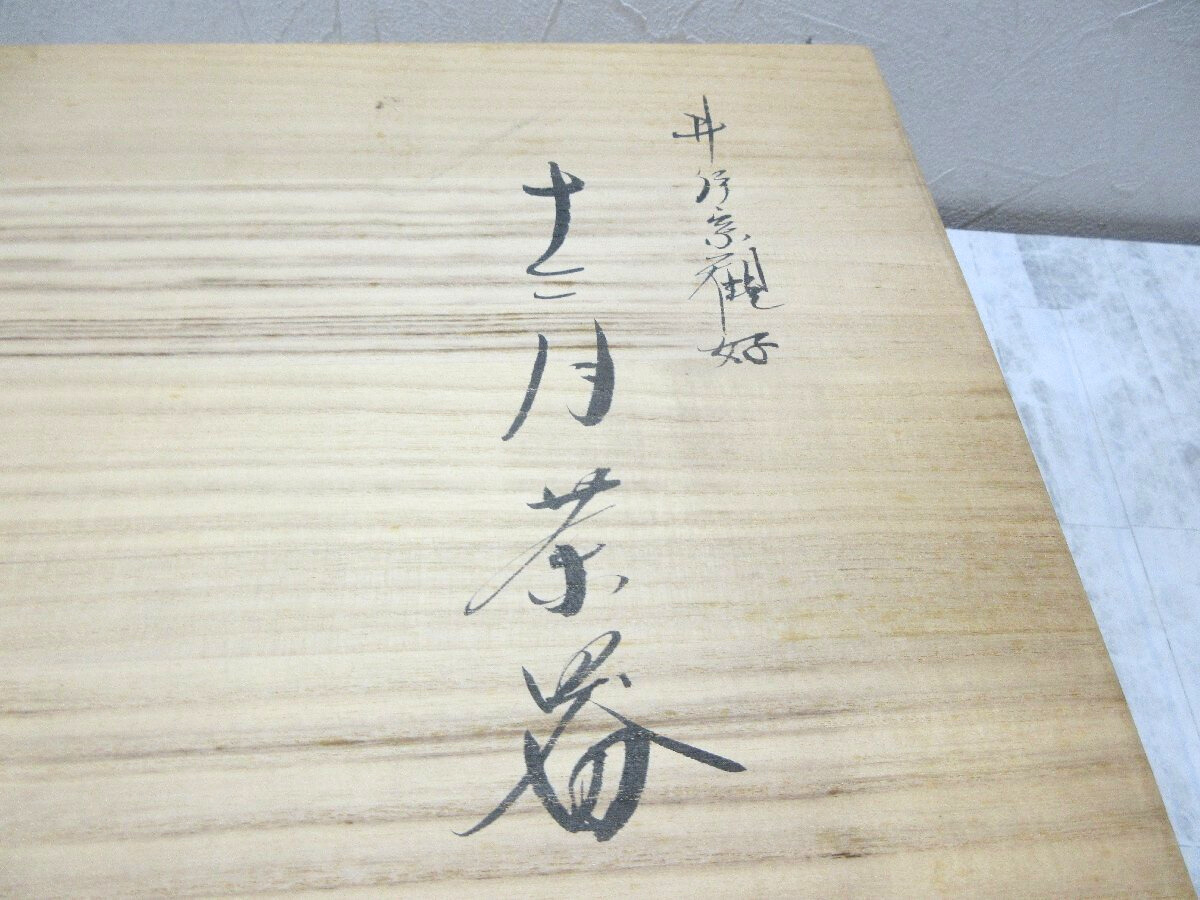 井伊宗観好
十二月茶器